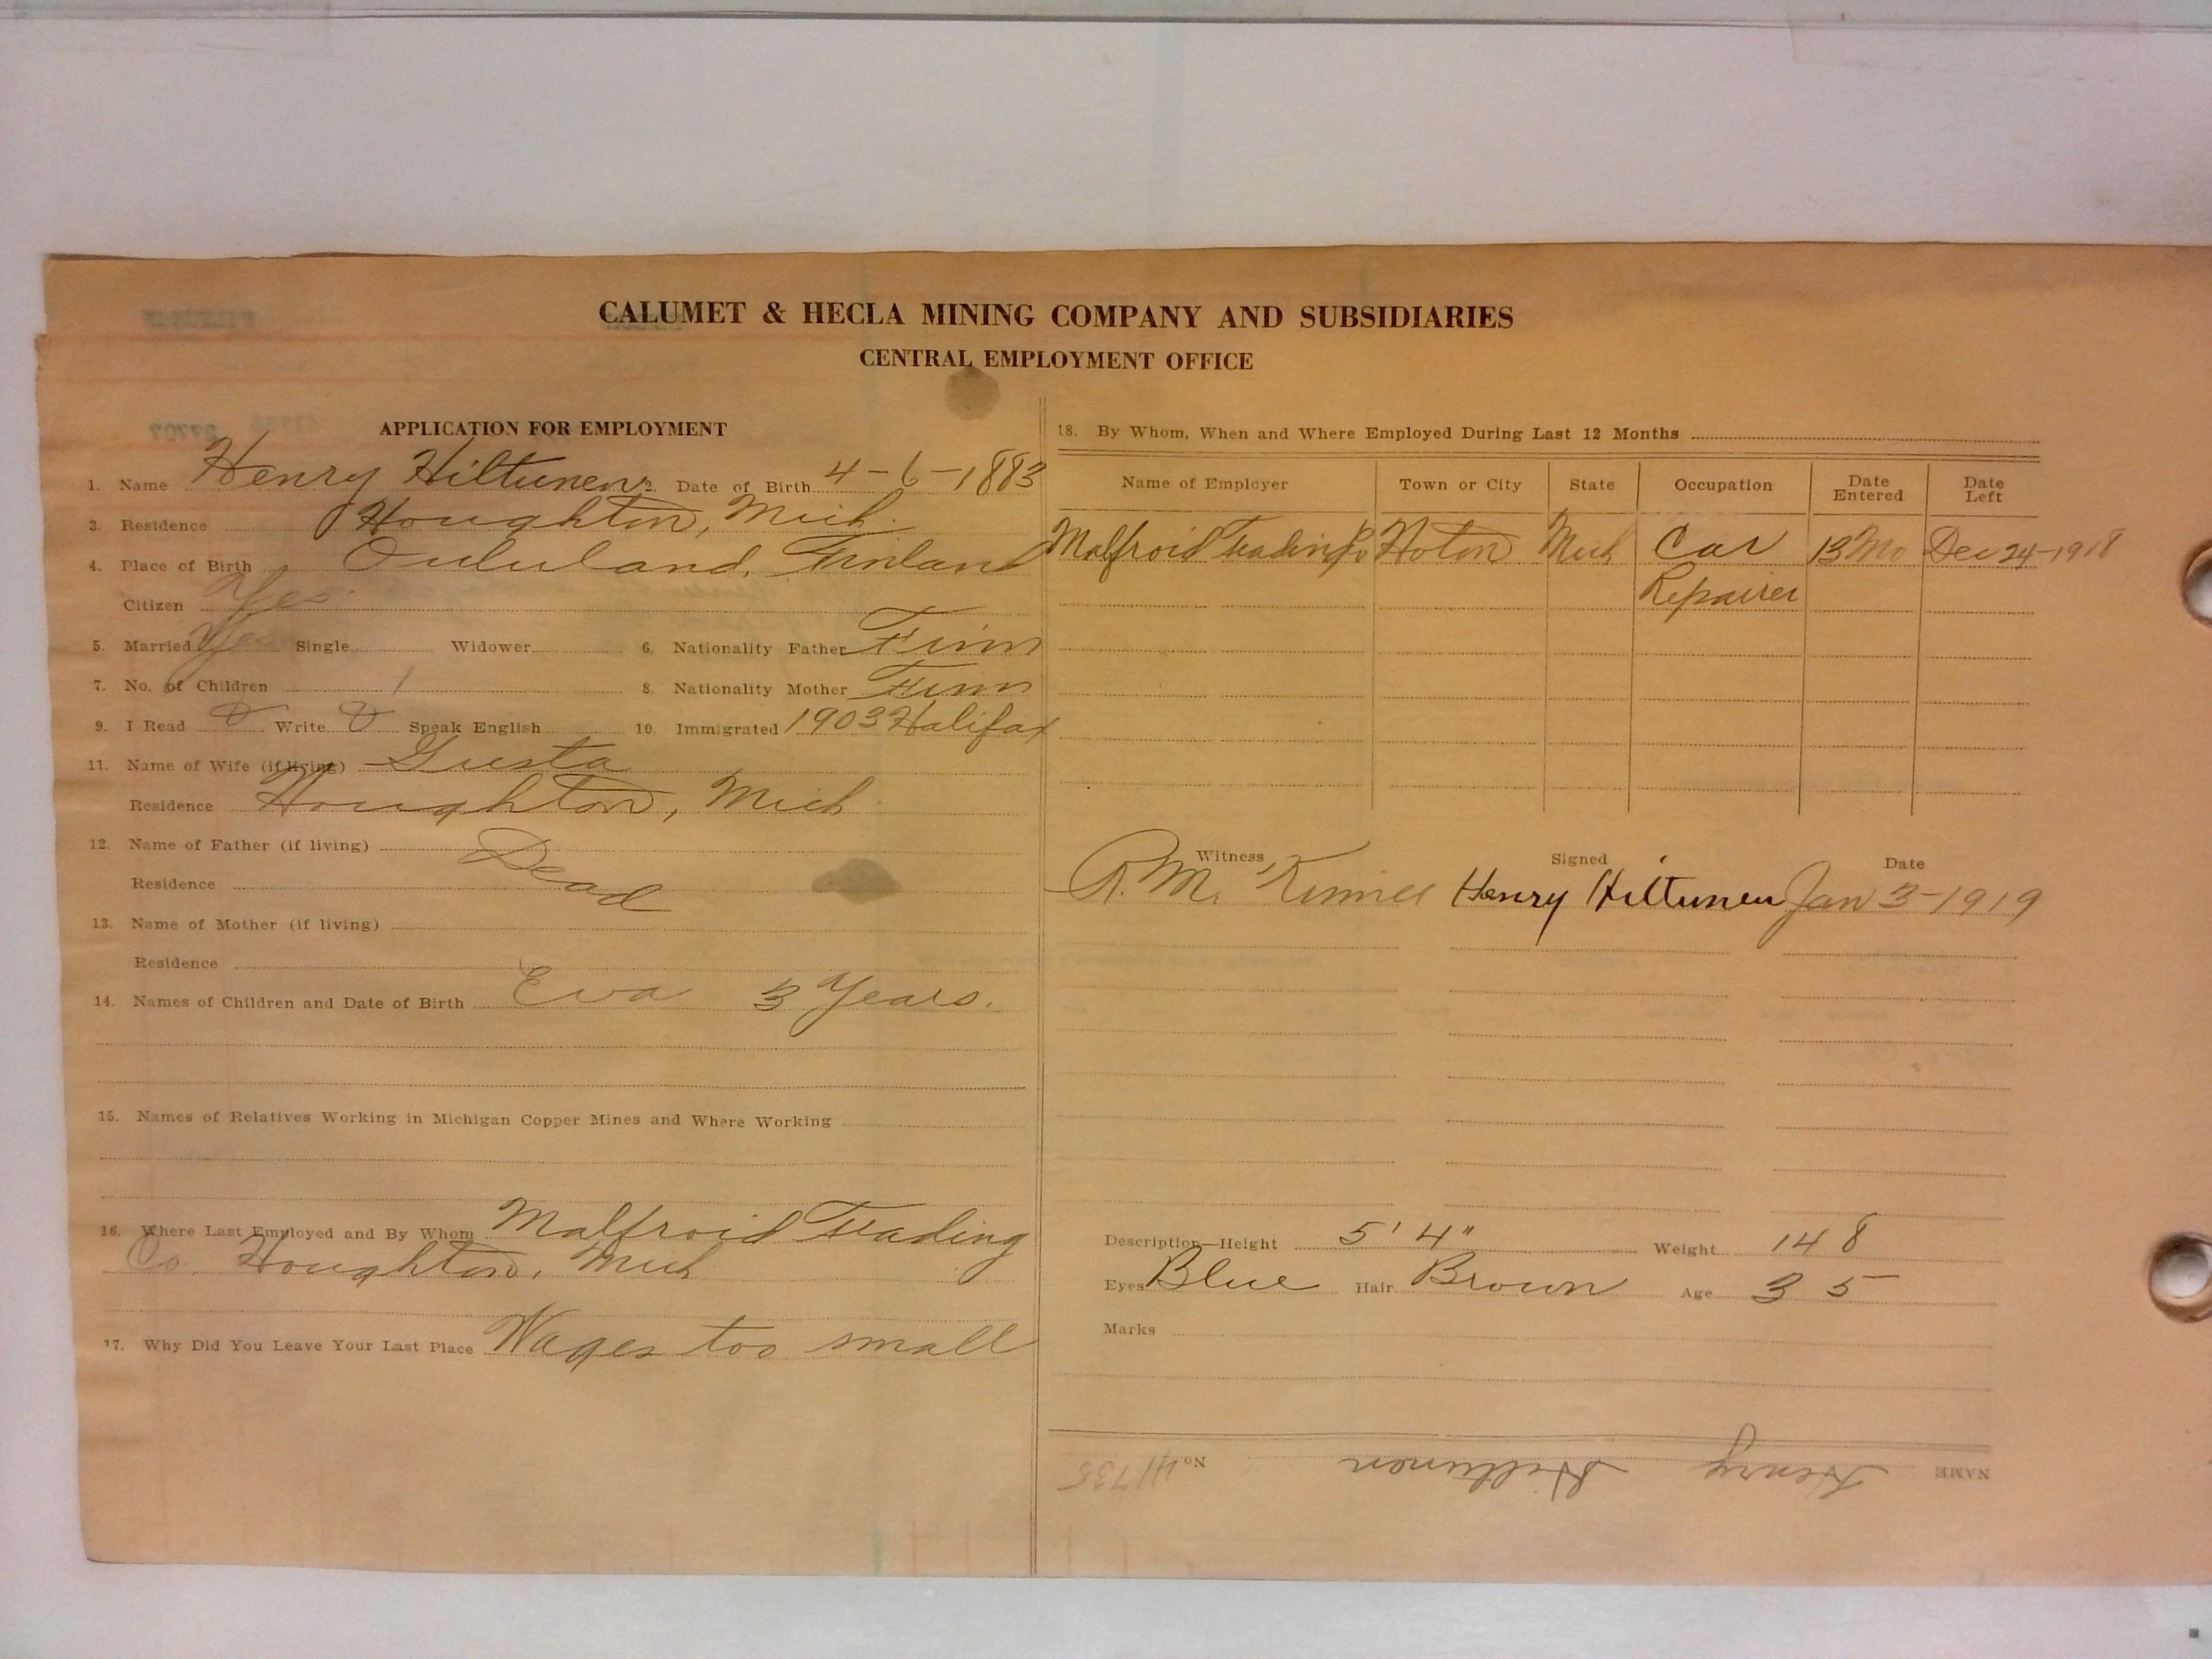 CALUMET & HECLA MINING COMPANY AND SUBSIDIARIES
CENTRAL EMPLOYMENT OFFICE
APPLICATION FOR EMPLOYMENT
1. Name Henry Hiltunen 2. Date of Birth 4-6-1883
3. Residence Houghton, Mich.
4. Place of Birth Oululand, Finland
Citizen Yes
5. Married Yes Single Widower 6. Nationality Father Finn
7. No. of Children 1 8. Nationality Mother Finn
9. I Read Write Speak English 10. Immigrated 1903 Halifax
11. Name of Wife (if living) Gusta
Residence Houghton, Mich
12. Name of Father (if living) Dead
Residence
13. Name of Mother (if living)
Residence
14. Names of Children and Date of Birth Eva 3 Years.
15. Names of Relatives Working in Michigan Copper Mines and Where Working
16. Where Last Employed and By Whom Malfroid Trading
Co. Houghton, Mich
17. Why Did You Leave Your Last Place Wages too small
18. By Whom, When and Where Employed During Last 12 Months
Name of Employer Town or City State Occupation Date Entered Date Left
Malfroid Trading Co Hoton Mich Car 13 Mo Dec 24-1918
Repairer
Witness Signed Date
R. M. Henry Hiltunen Jan 3-1919
Description—Height 5' 4" Weight 148
Eyes Blue Hair Brown Age 35
Marks
NAME Henry Hiltunen No. 41735